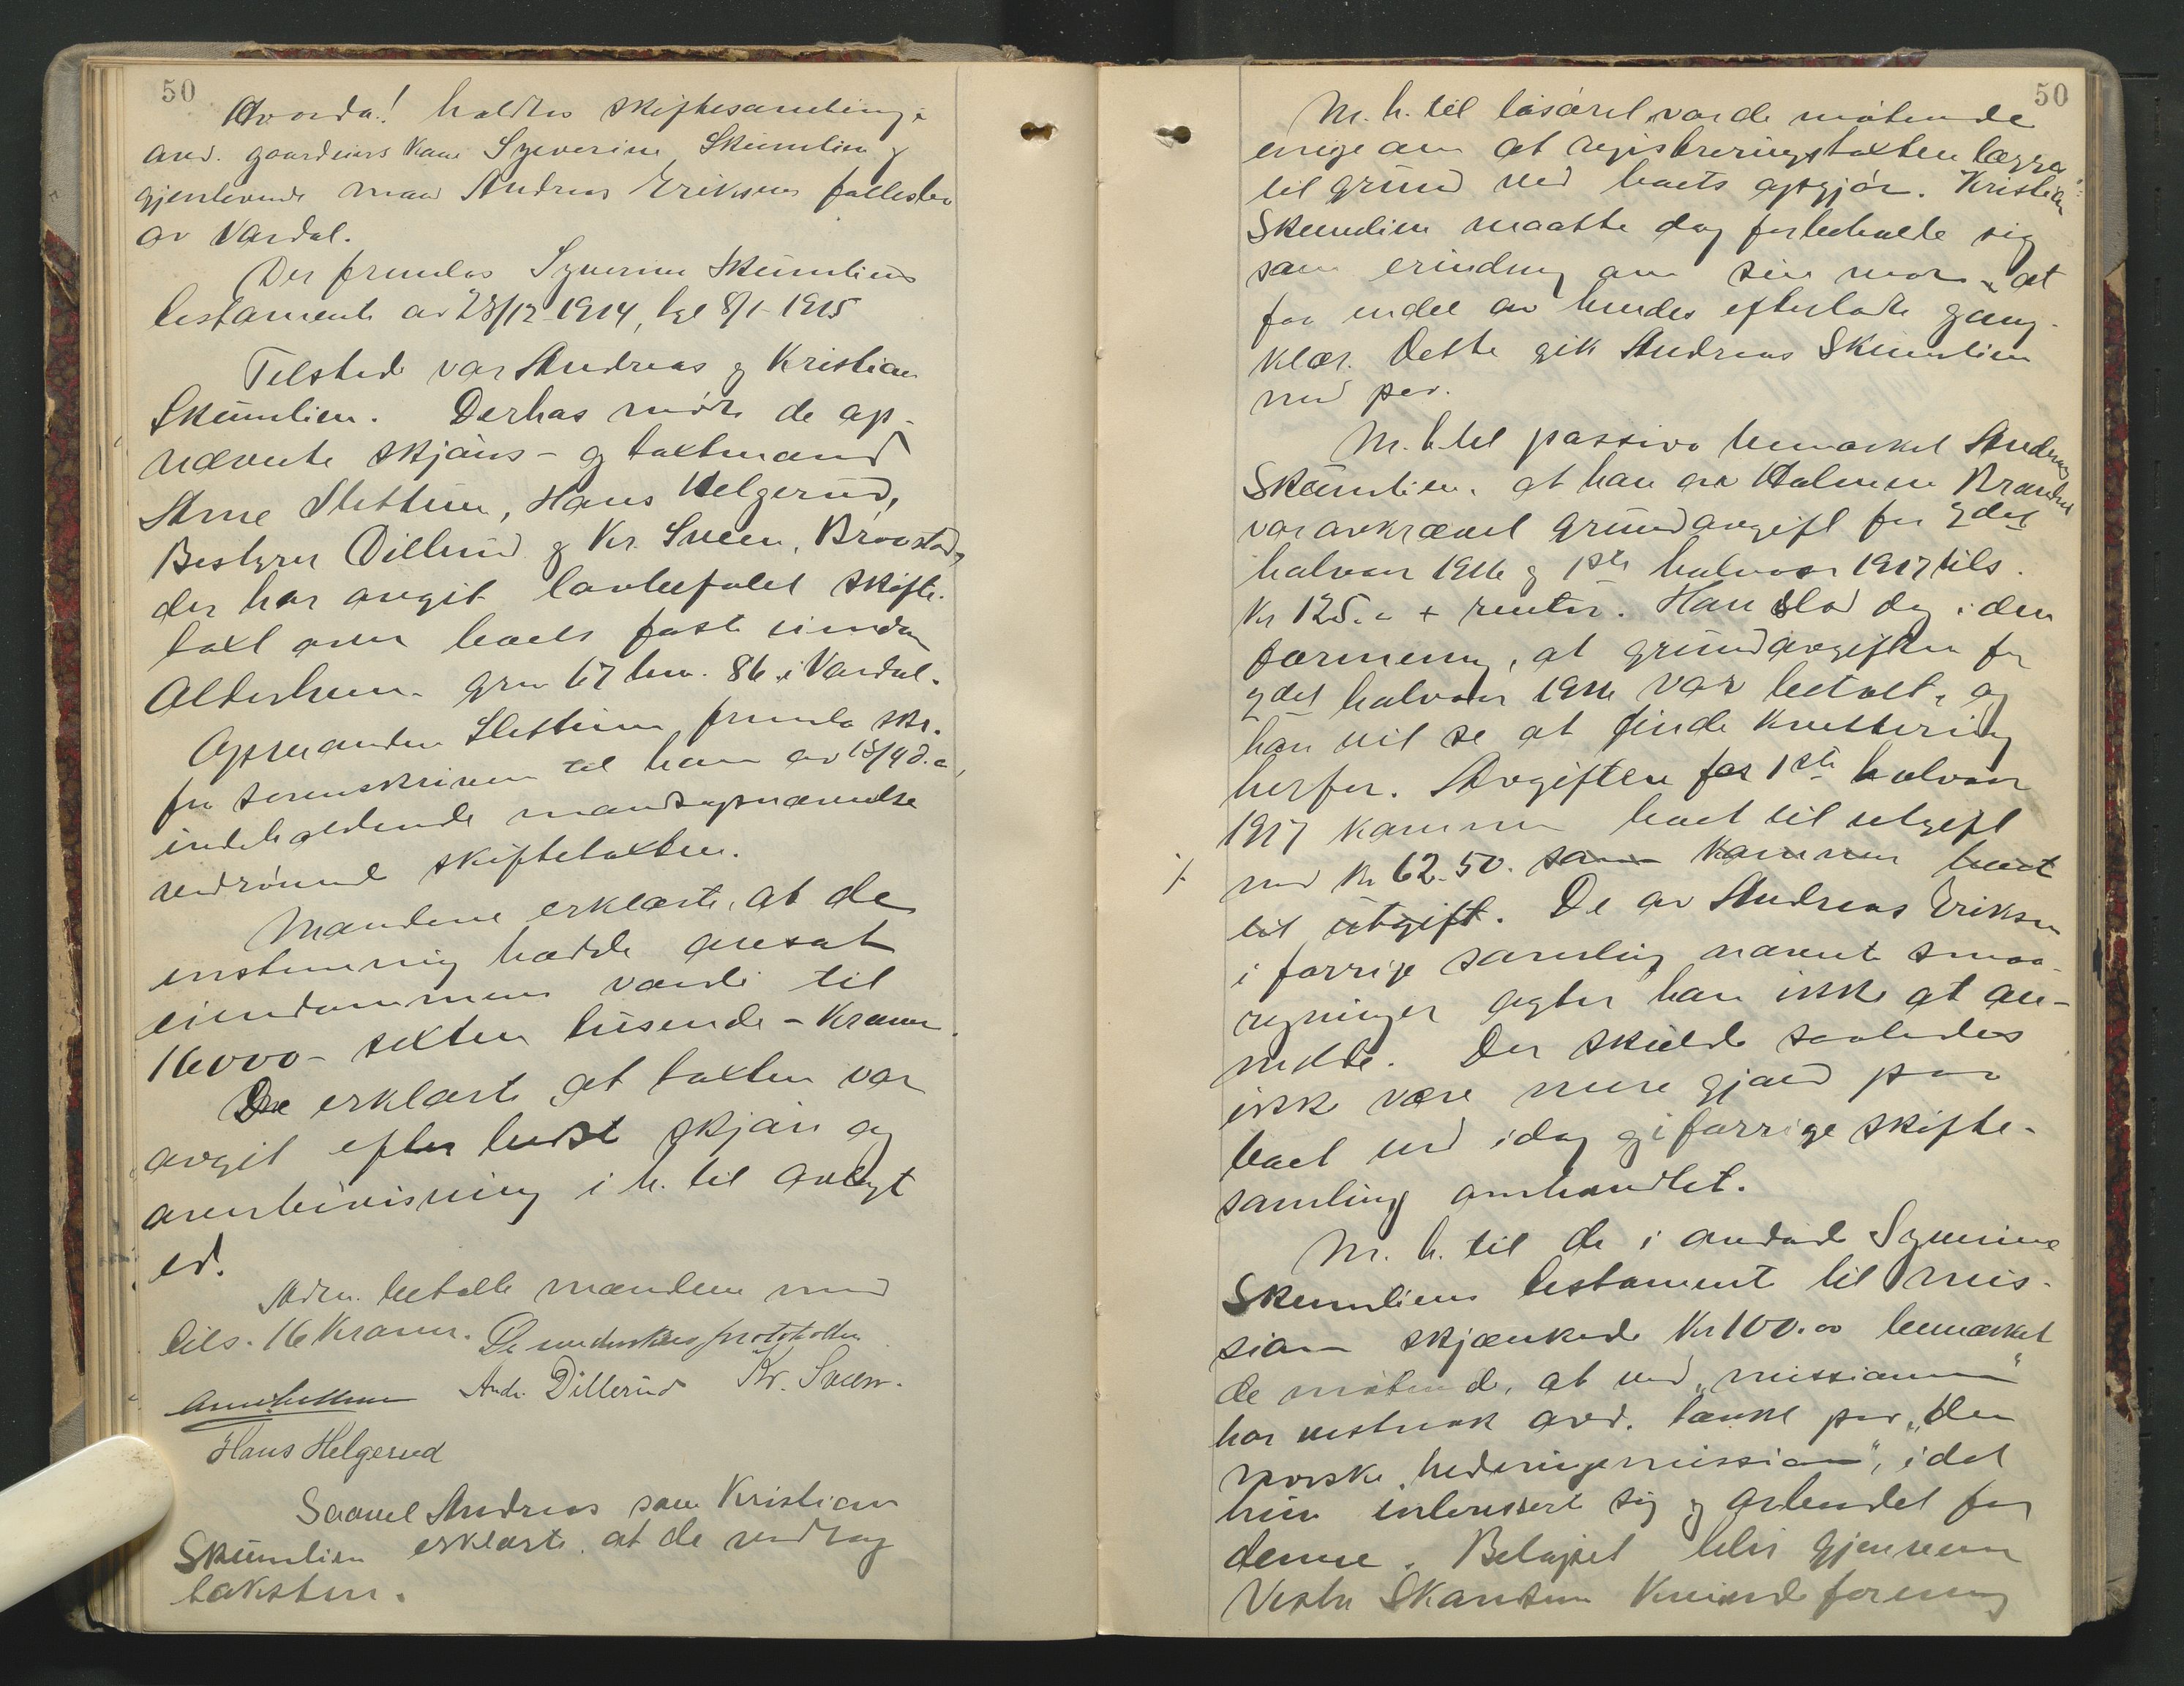 50
Av o. da! holdtes skiftesamling i
avd. gaardeiers kone Syverine Skumlien og
gjenlevende mand Andreas Eriksens fællesbo
av Vardal.
Der fremlas Syverine Skumliens
testamente av 28/12-1914, tgl 8/1-1915
Tilstede var Andreas og Kristian
Skumlien. Derhos møtte de op-
nævnte skjøns- og taxtmænd
Arne Slettum, Hans Helgerud,
Bestyrer Dillerud og Kr. Sveen, Braastad,
der har avgit lovbefalet skifte-
taxt over boets faste eiendom
Alderheim gnr 67 bnr. 86 i Vardal.
Opmanden Slettum fremla skr.
fra sorenskriveren til ham av 15/9 d.a,
indeholdende mandsopnævnelse
vedrørende skiftetaxten.
Mændene erklærte, at de
enstemmig hadde ansat
eiendommens værdi til
16000- seksten tusende - kroner.
De erklærte at taxten var
avgit efter bedste skjøn og
overbevisning i h. til avlagt
ed.
Adm. betalte mændene med
tils. 16 kroner. De underskrev protokollen
Arne Slettum Andr. Dillerud Kr. Sveen.
Hans Helgerud
Saavel Andreas som Kristian
Skumlien erklærte, at de vedtog
taksten.
50
M. h. til løsøret var de møtende
enige om at registreringstaxten lægges
til grund ved boets opgjør. Kristian
Skumlien maatte dog forbeholde sig
som erindring om sin mor at
faa endel av hendes efterladte gang-
klær. Dette gik Andreas Skumlien
med paa.
M. h. til passiva bemærket Andreas
Skumlien, at han av Halmen Brænderi
var avkrævet grundavgift for 2det
halvaar 1916 og 1ste halvaar 1917 tils.
Kr 125.- + renter. Han stod dog i den
formening, at grundavgiften for
2det halvaar 1916 var betalt, og
han vil se at finde kvittering
herfor. Avgiften for 1ste halvaar
1917 kommer boet til utgift
med kr 62.50. som kommer boet
til utgift. De av Andreas Eriksen
i forrige samling nævnte smaa-
regninger agter han ikke at an-
melde. Der skulde saaledes
ikke være mere gjæld paa
boet end idag og i forrige skifte-
samling omhandlet.
M. h. til de i avdøde Syverine
Skumliens testament til mis-
sion skjænkede Kr 100.00 bemærket
de møtende, at ved "missionen"
har vistnok avd. tænkt paa "den
norske hedningemission", idet
hun interessert sig og arbeidet for
denne. Beløpet blir gjennem
Vestre Skanseen kvindeforening